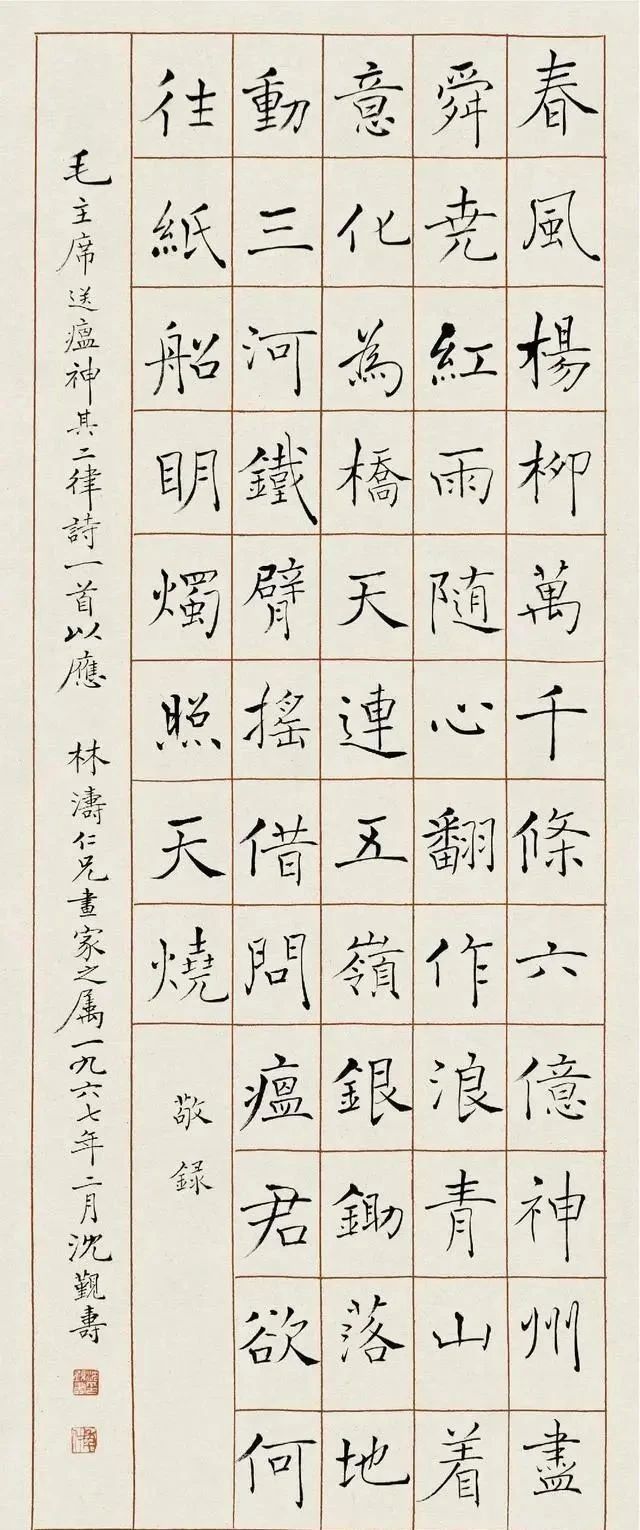 春風楊柳萬千條六億神州盡
舜尭紅雨随心翻作浪青山着
意化為橋天連五嶺銀鋤落地
動三河鐵臂搖借問瘟君欲何
往紙船明燭照天燒
敬錄
毛主席送瘟神其二律詩一首以應 林濤仁兄畫家之属一九六七年二月沈覲壽